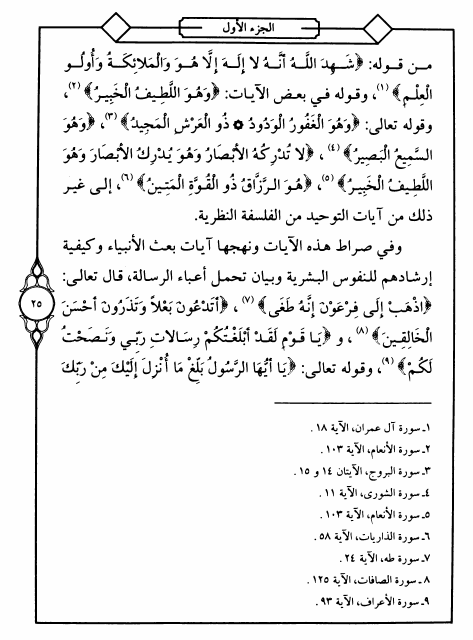 الجزء الأول
من قوله: ﴿شَهِدَ اللَّهُ أَنَّهُ لا إِلَهَ إِلَّا هُوَ وَالْمَلائِكَةُ وَأُولُو
الْعِلْمِ﴾(١)، وقوله في بعض الآيات: ﴿وَهُوَ اللَّطِيفُ الْخَبِيرُ﴾(٢)،
وقوله تعالى: ﴿وَهُوَ الْغَفُورُ الْوَدُودُ * ذُو الْعَرْشِ الْمَجِيدُ﴾(٣)، ﴿وَهُوَ
السَّمِيعُ الْبَصِيرُ﴾(٤)، ﴿لا تُدْرِكُهُ الأَبْصَارُ وَهُوَ يُدْرِكُ الأَبْصَارَ وَهُوَ
اللَّطِيفُ الْخَبِيرُ﴾(٥)، ﴿هُوَ الرَّزَّاقُ ذُو الْقُوَّةِ الْمَتِينُ﴾(٦)، إلى غير
ذلك من آيات التوحيد من الفلسفة النظرية.
وفي صراط هذه الآيات ونهجها آيات بعث الأنبياء وكيفية
إرشادهم للنفوس البشرية وبيان تحمل أعباء الرسالة، قال تعالى:
﴿اذْهَبْ إِلَى فِرْعَوْنَ إِنَّهُ طَغَى﴾(٧)، ﴿أَتَدْعُونَ بَعْلاً وَتَذَرُونَ أَحْسَنَ
الْخَالِقِينَ﴾(٨)، و ﴿يَا قَوْمِ لَقَدْ أَبْلَغْتُكُمْ رِسَالاتِ رَبِّي وَنَصَحْتُ
لَكُمْ﴾(٩)، وقوله تعالى: ﴿يَا أَيُّهَا الرَّسُولُ بَلِّغْ مَا أُنْزِلَ إِلَيْكَ مِنْ رَبِّكَ
٢٥
١ـ سورة آل عمران، الآية ١٨.
٢ـ سورة الأنعام، الآية ١٠٣.
٣ـ سورة البروج، الآيتان ١٤ و ١٥.
٤ـ سورة الشورى، الآية ١١.
٥ـ سورة الأنعام، الآية ١٠٣.
٦ـ سورة الذاريات، الآية ٥٨.
٧ـ سورة طه، الآية ٢٤.
٨ـ سورة الصافات، الآية ١٢٥.
٩ـ سورة الأعراف، الآية ٩٣.